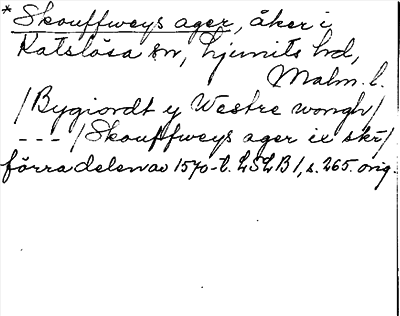 * Skouffweys ager, åker i
Katslösa sn, Ljunits hd,
Malm. l.
/Bygiordt y Westre wongh/
--- /Skouffweys ager ix skr/
förra delen av 1570-t. LSLB 1, s. 265. orig.